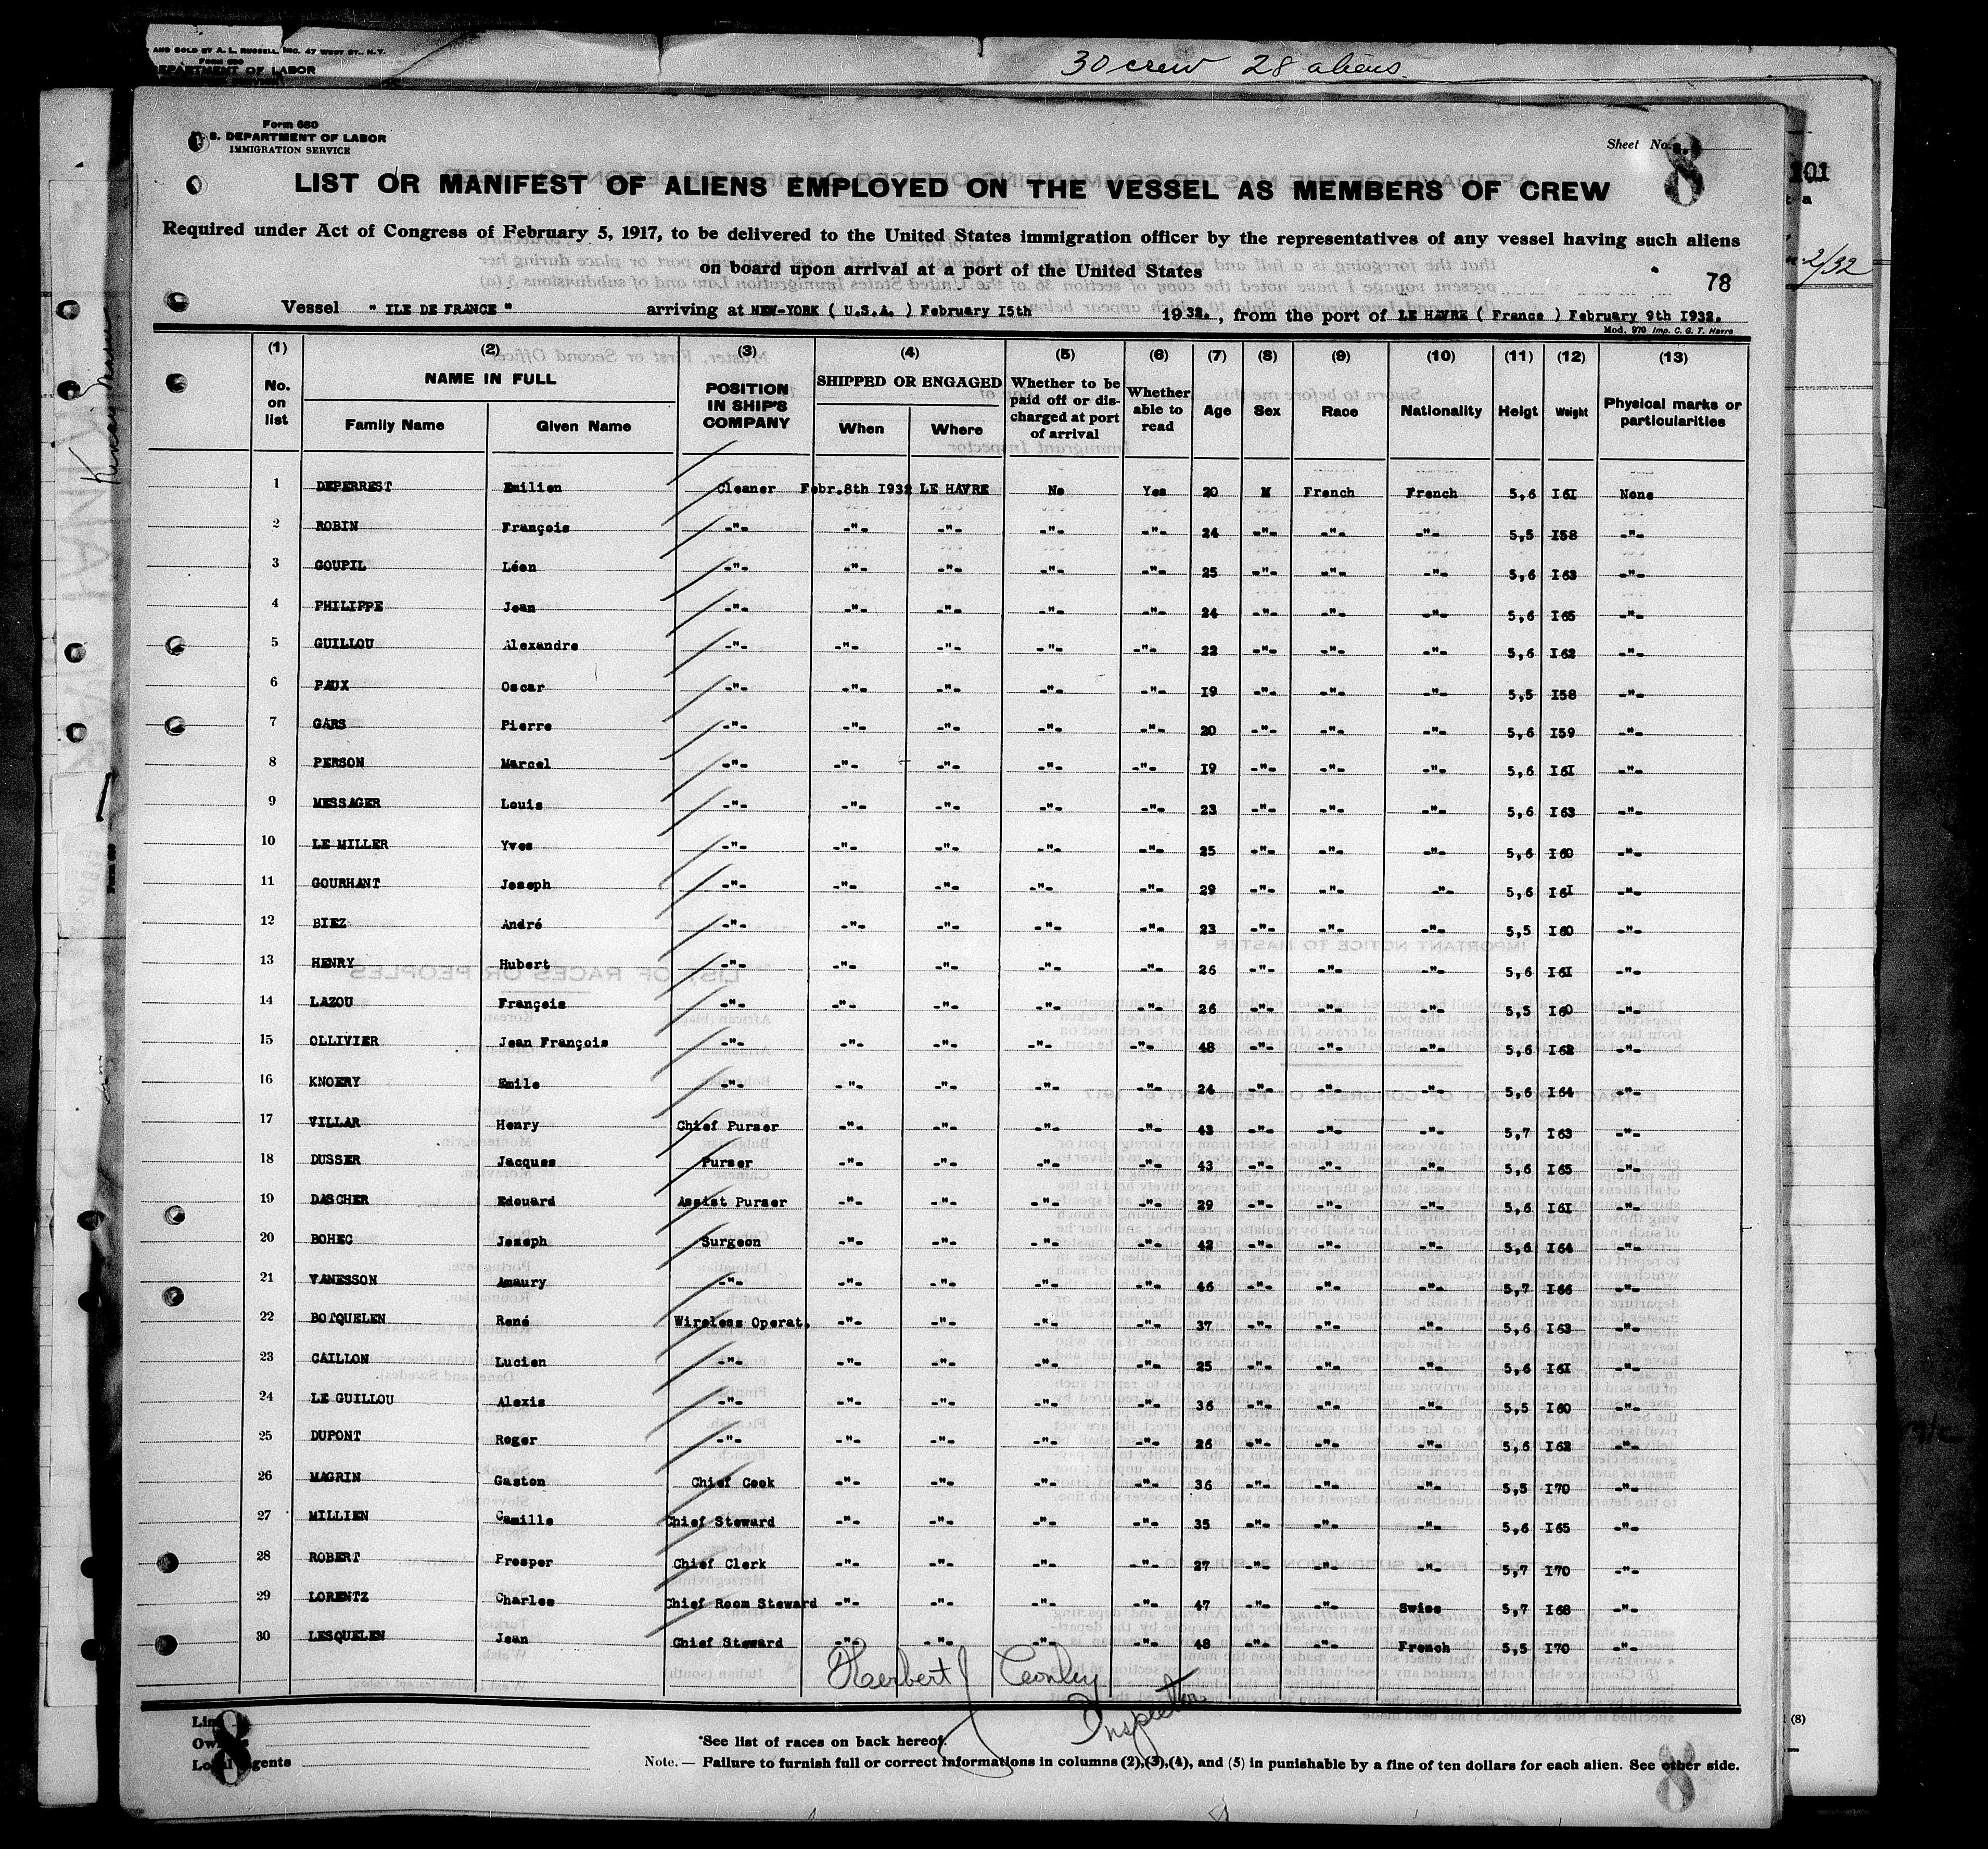 AND SOLD BY A. L. RUSSELL, INC. 47 WEST ST., N.Y.
Form 680
DEPARTMENT OF LABOR
30 crew 28 aliens.
Form 680
S. DEPARTMENT OF LABOR
IMMIGRATION SERVICE
Sheet No. 8
LIST OR MANIFEST OF ALIENS EMPLOYED ON THE VESSEL AS MEMBERS OF CREW
101
Required under Act of Congress of February 5, 1917, to be delivered to the United States immigration officer by the representatives of any vessel having such aliens
on board upon arrival at a port of the United States
2/32
78
Vessel " ILE DE FRANCE " arriving at NEW-YORK ( U.S.A. ) February I5th 1932. , from the port of LE HAVRE ( France ) February 9th I932.
Mod. 970 Imp. C. G. T. Havre
(1) (2) (3) (4) (5) (6) (7) (8) (9) (10) (11) (12) (13)
No. on list NAME IN FULL Family Name Given Name POSITION IN SHIP'S COMPANY SHIPPED OR ENGAGED When Where Whether to be paid off or discharged at port of arrival Whether able to read Age Sex Race Nationality Heigt Weight Physical marks or particularities
1 DEPERREST Emilien Cleaner Febr.8th I932 LE HAVRE No Yes 20 M French French 5,6 I6I None
2 ROBIN François -"- -"- -"- -"- -"- 24 -"- -"- -"- 5,5 I58 -"-
3 GOUPIL Léon -"- -"- -"- -"- -"- 25 -"- -"- -"- 5,6 I63 -"-
4 PHILIPPE Jean -"- -"- -"- -"- -"- 24 -"- -"- -"- 5,6 I65 -"-
5 GUILLOU Alexandre -"- -"- -"- -"- -"- 22 -"- -"- -"- 5,6 I62 -"-
6 PAUX Oscar -"- -"- -"- -"- -"- I9 -"- -"- -"- 5,5 I58 -"-
7 GARS Pierre -"- -"- -"- -"- -"- 20 -"- -"- -"- 5,6 I59 -"-
8 PERSON Marcel -"- -"- -"- -"- -"- I9 -"- -"- -"- 5,6 I6I -"-
9 MESSAGER Louis -"- -"- -"- -"- -"- 23 -"- -"- -"- 5,6 I63 -"-
10 LE MILLER Yves -"- -"- -"- -"- -"- 25 -"- -"- -"- 5,6 I60 -"-
11 GOURHANT Joseph -"- -"- -"- -"- -"- 29 -"- -"- -"- 5,6 I6I -"-
12 BIEZ André -"- -"- -"- -"- -"- 23 -"- -"- -"- 5,5 I60 -"-
13 HENRY Hubert -"- -"- -"- -"- -"- 26 -"- -"- -"- 5,6 I6I -"-
14 LAZOU François -"- -"- -"- -"- -"- 26 -"- -"- -"- 5,5 I60 -"-
15 OLLIVIER Jean François -"- -"- -"- -"- -"- 48 -"- -"- -"- 5,6 I62 -"-
16 KNOERY Emile -"- -"- -"- -"- -"- 24 -"- -"- -"- 5,6 I64 -"-
17 VILLAR Henry Chief Purser -"- -"- -"- -"- 43 -"- -"- -"- 5,7 I63 -"-
18 DUSSER Jacques Purser -"- -"- -"- -"- 43 -"- -"- -"- 5,6 I65 -"-
19 DASCHER Edouard Assist Purser -"- -"- -"- -"- 29 -"- -"- -"- 5,6 I6I -"-
20 BOHEC Joseph Surgeon -"- -"- -"- -"- 42 -"- -"- -"- 5,6 I64 -"-
21 VANESSON Amaury -"- -"- -"- -"- -"- 46 -"- -"- -"- 5,7 I66 -"-
22 BOTQUELEN René Wireless Operat. -"- -"- -"- -"- 37 -"- -"- -"- 5,6 I63 -"-
23 CAILLON Lucien -"- -"- -"- -"- -"- 25 -"- -"- -"- 5,6 I6I -"-
24 LE GUILLOU Alexis -"- -"- -"- -"- -"- 36 -"- -"- -"- 5,5 I60 -"-
25 DUPONT Roger -"- -"- -"- -"- -"- 26 -"- -"- -"- 5,6 I62 -"-
26 MAGRIN Gaston Chief Cook -"- -"- -"- -"- 36 -"- -"- -"- 5,5 I70 -"-
27 MILLIEN Camille Chief Steward -"- -"- -"- -"- 35 -"- -"- -"- 5,6 I65 -"-
28 ROBERT Prosper Chief Clerk -"- -"- -"- -"- 27 -"- -"- -"- 5,7 I70 -"-
29 LORENTZ Charles Chief Room Steward -"- -"- -"- -"- 47 -"- -"- Swiss 5,7 I68 -"-
30 LESQUELEN Jean Chief Steward -"- -"- -"- -"- 48 -"- -"- French 5,5 I70 -"-
Herbert Conley
Inspector
8
Local Agents
*See list of races on back hereof.
Note. — Failure to furnish full or correct informations in columns (2),(3),(4), and (5) in punishable by a fine of ten dollars for each alien. See other side.
8
(8)